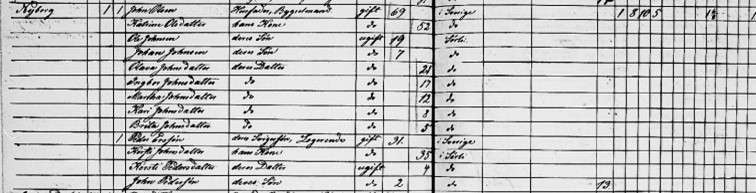 Nyborg 1 1 John Olsen Huusfader, Bygselmand gift 69 i Sverige 1 8 10 5
Katrine Olsdatter hans Kone do 52 do
Ole Johnsen deres Søn ugift 19
Johan Johnsen deres Søn do 7 do
Olava Johnsdatter deres Datter do 21 do
Ingbor Johnsdatter do do 17 do
Martha Johnsdatter do do 12 do
Kari Johnsdatter do do 8 do
Brita Johnsdatter do do 5 do
1 Peder gift 31 i Sverige
Kirsti Johnsdatter hans Kone do 35
Kirsti Pedersdatter deres Datter ugift 4 do
John Pedersen deres Søn do 2 do 13